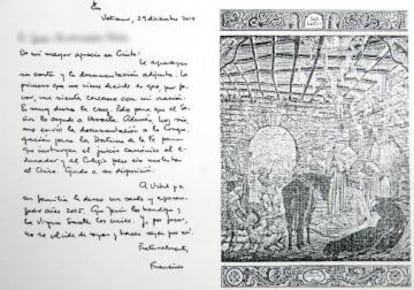 Vaticano, 29 diciembre 2014
De mi mayor aprecio en Cristo:
Le agradezco
su carta y la documentación adjunta. Lo
primero que me viene decirle es que, por fa-
vor, me sienta cercano con mi oración.
Es muy dura la cruz. Pido para que el Se-
ñor lo ayude a llevarla. Además, hoy mis-
mo envío la documentación a la Congre-
gación para la Doctrina de la Fe para
que instruyan el juicio canónico al e-
ducador y al Colegio pero sin molestar
al chico. Quedo a su disposición.
A Usted y a
su familia le deseo un santo y espera-
zador año 2015. Que Jesús los bendiga y
la Virgen Santa los cuide. Y, por favor,
no se olvide de rezar y hacer rezar por mí.
Fraternalmente,
Francisco